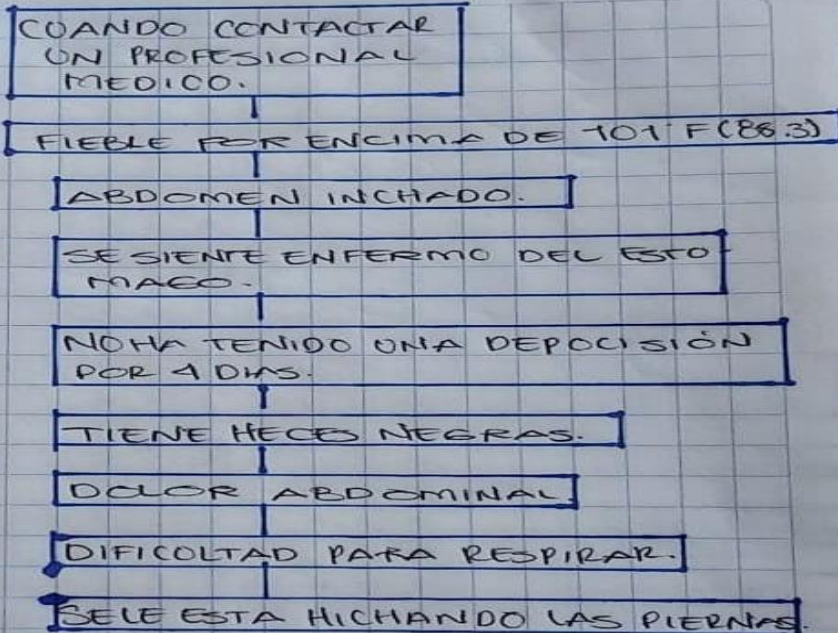 CUANDO CONTACTAR
UN PROFESIONAL
MEDICO.
FIEBLE POR ENCIMA DE 101 F (88.3)
ABDOMEN INCHADO.
SE SIENTE ENFERMO DEL ESTO
MAGO.
NO HA TENIDO UNA DEPOCISIÓN
POR 4 DIAS.
TIENE HECES NEGRAS.
DOLOR ABDOMINAL.
DIFICOLTAD PARA RESPIRAR.
SELE ESTA HICHANDO LAS PIERNAS.